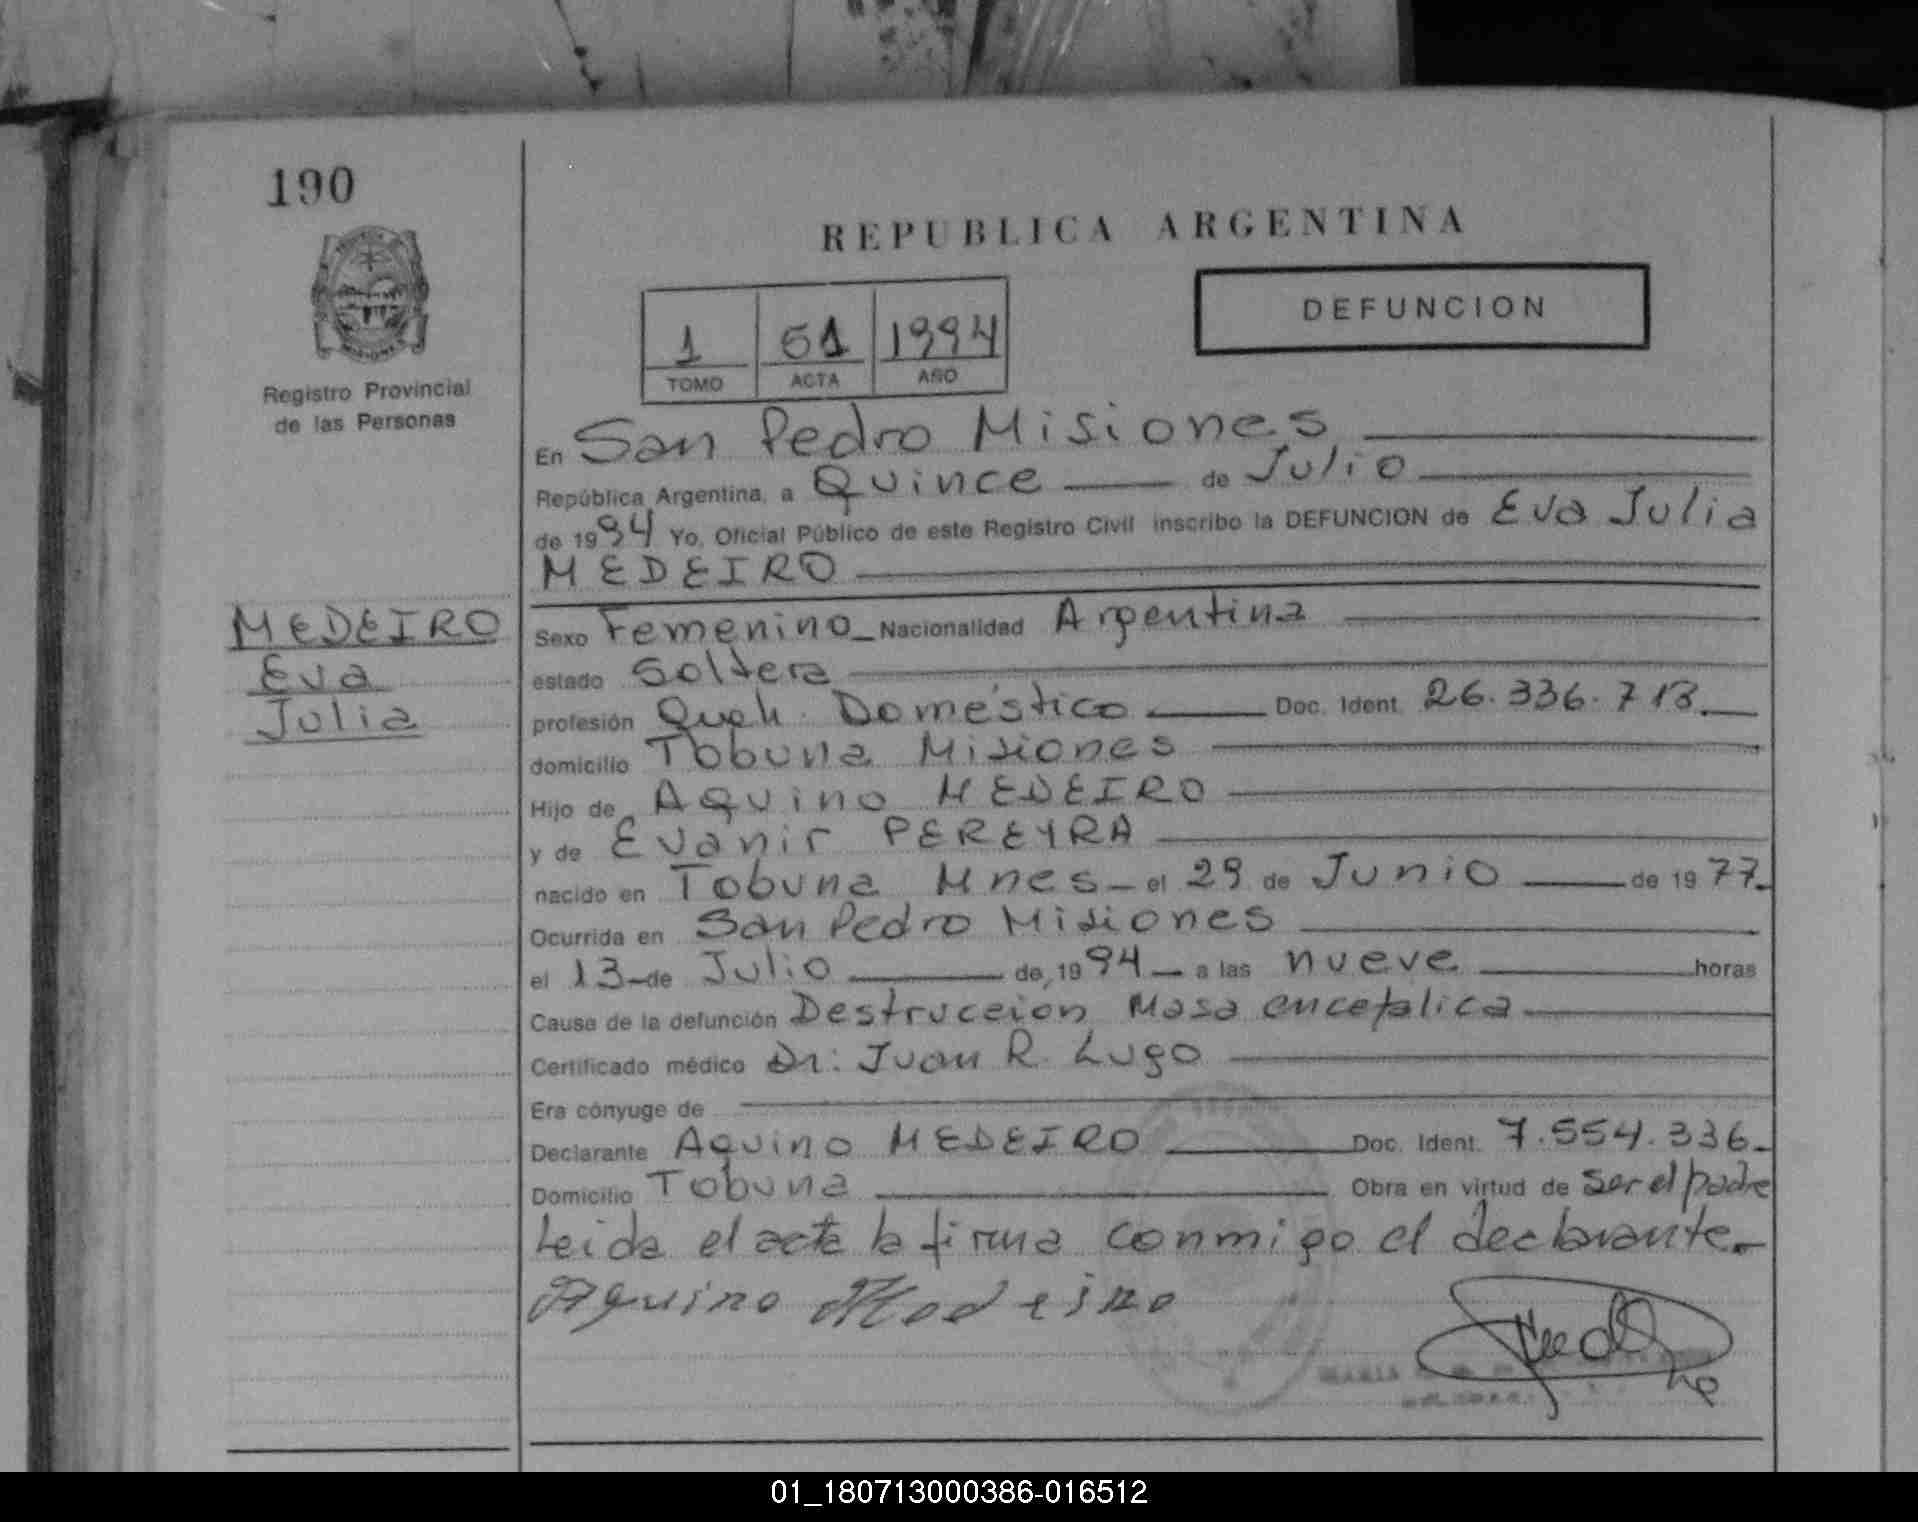 190
REPUBLICA ARGENTINA
DEFUNCION
1 61 1994
TOMO ACTA AÑO
Registro Provincial
de las Personas
En San Pedro Misiones
República Argentina, a Quince de Julio
de 1994 Yo, Oficial Público de este Registro Civil inscribo la DEFUNCION de Eva Julia
MEDEIRO
MEDEIRO
Eva
Julia
Sexo Femenino Nacionalidad Argentina
estado Soltera
profesión Queh. Doméstico Doc. Ident. 26.336.713
domicilio Tobuna Misiones
Hijo de Aquino MEDEIRO
y de Evanir PEREYRA
nacido en Tobuna Mnes el 29 de Junio de 1977
Ocurrida en San Pedro Misiones
el 13 de Julio de 1994 a las nueve horas
Causa de la defunción Destruceion Masa encefalica
Certificado médico Dr: Juan R. Lugo
Era cónyuge de
Declarante Aquino MEDEIRO Doc. Ident. 7.554.336
Domicilio Tobuna Obra en virtud de ser el padre
Leida el acta la firma conmigo el declarante.
Aquino Medeiro
MARIA
01_180713000386-016512